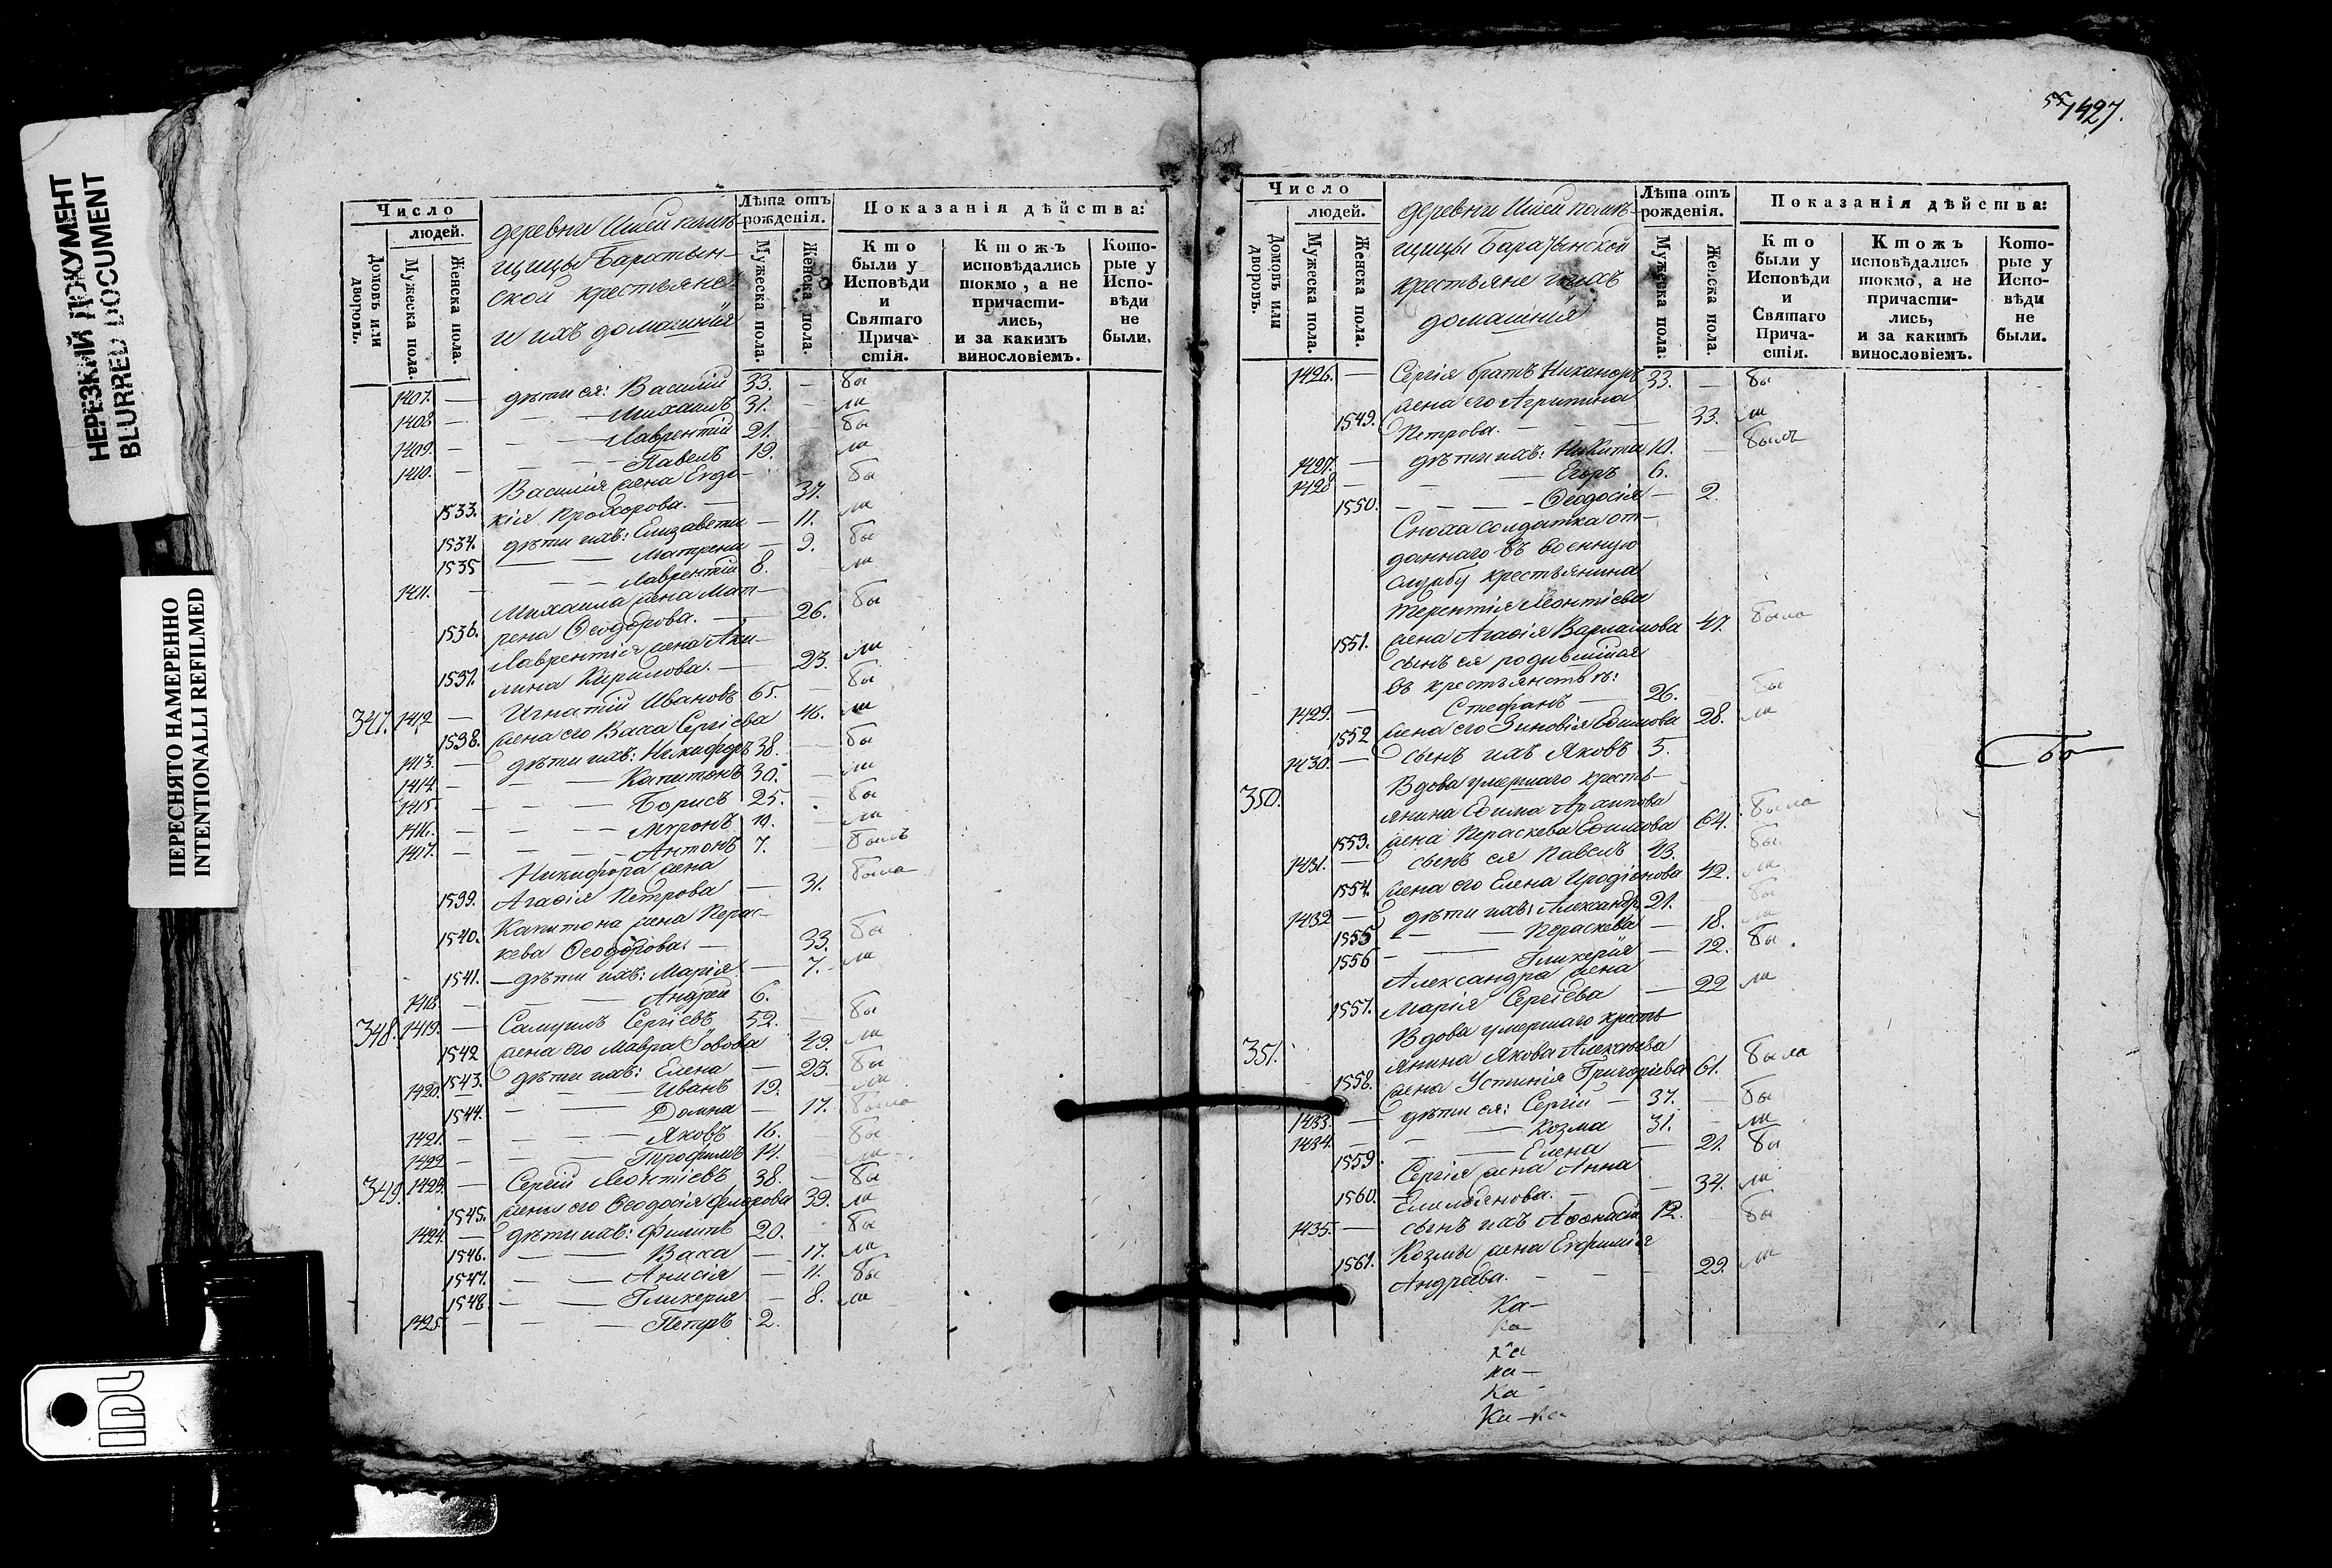 НЕРЕЗКИЙ ДОКУМЕНТ
BLURRED DOCUMENT
ПЕРЕСНЯТО НАМЕРЕННО
INTENTIONALLI REFILMED
Число
людей.
Домовъ или дворовъ.
Мужеска пола.
Женска пола.
деревни Ишей помѣ-
щицы
ской крестьяне
и ихъ домашнія
Лѣта отъ рожденія.
Мужеска пола.
Женска пола.
Показанія дѣйства:
Кто были у Исповѣди и Святаго Причастія.
Ктожъ исповѣдались токмо, а не причастились, и за какимъ винословіемъ.
Которые у Исповѣди не были.
1407. — дѣти ея: Василій 33. — бы
1408 — Михаилъ 31. — ли
1409. — Лаврентій 21. — бы
1410. — Павелъ 19. — ли
Василія жена Евдо-
1533. кія Прохорова. — 37. бы
1534. дѣти ихъ: Елизавета — 11. ли
1535 — Матрена — 9. бы
1411. — Лаврентій 8. — ли
Михаила жена Мат-
1536. рена Ѳеодорова. — 26. бы
Лаврентія жена Аку-
1537. лина Кирилова. — 23. ли
347. 1412 — Игнатій Ивановъ 65. — бы
1538. жена его Васса Сергіева 46. ли
1413. — дѣти ихъ: Никифоръ 38. — бы
1414. — Капитонъ 30. — ли
1415 — Борисъ 25. — бы
1416. — Миронъ 11. — ли
1417. — Антонъ 7. — былъ
Никифора жена
1539. Агаѳія Петрова — 31. была
Капитона женаПерас-
1540. кева Ѳеодорова. — 33. бы
1541. — дѣти ихъ: Марія — 7. ли
1418. — Андрей 6.
348. 1419. — Самуилъ Сергіевъ 52. — бы
1542 жена его Мавра Іовова 49. ли
1543. дѣти ихъ: Елена — 23. бы
1420. — Иванъ 19. — ли
1544. — Домна — 17. была
1421. — Яковъ 16. — бы
1422 — Трофимъ 14. — ли
349. 1423. — Сергій Леонтіевъ 38. — бы
1545. жена его Ѳеодосія 39. ли
1424. — дѣти ихъ: Филипъ 20. бы
1546. — Васса — 17. ли
1547. — Анисія — 11. бы
1548. — Гликерія — 8. ли
1425. — Петръ 2.
55
1427.
Число
людей.
Домовъ или дворовъ.
Мужеска пола.
Женска пола.
деревни Ишей помѣ-
щицы
крестьяне и ихъ
домашнія
Лѣта отъ рожденія.
Мужеска пола.
Женска пола.
Показанія дѣйства:
Кто были у Исповѣди и Святаго Причастія.
Ктожъ исповѣдались токмо, а не причастились, и за какимъ винословіемъ.
Которые у Исповѣди не были.
1426. — Сергія братъ Никаноръ 33. — бы
жена его Агрипина
1549. Петрова. — 33. ли
1427. — дѣти ихъ: Никита 10. — былъ
1428 — Егоръ 6.
1550. — Ѳеодосія — 2.
Сноха солдатка от-
даннаго въ военную
службу крестьянина
Терентія Леонтіева
1551. жена Агаѳія Варламова 47. была
сынъ ея родившійся
въ крестьянствѣ:
1429. — Стефанъ — 26. бы
1552 жена его Зиновія Ефимова 28. ли
1430. — сынъ ихъ Яковъ 5.
350. Вдова умершаго кресть-
янина Ефима
1553. жена Параскева Ефимова 64. была
1431. — сынъ ея Павелъ 43. бы
1554. жена его Елена Иродіонова 42. ли
1432 — дѣти ихъ: Александръ 21. бы
1555 — Пераскева — 18. ли
1556 — Гликерія — 12. бы
Александра жена
1557. Марія Сергіева — 22 ли
351. Вдова умершаго кресть-
янина Якова Алексѣева
1558. жена Устинія Григоріева 61. была
1433. — дѣти ея: Сергій — 37. — бы
1434. — Козма 31. — ли
1559. — Елена — 21. бы
Сергія жена Анна
1560. Емельянова. — 34. ли
1435. — сынъ ихъ Аѳонасій 12. бы
Козмы жена Евфимія
1561. Андреева. — 29. ли
Ка-
Ка-
Ка
Ка-
Ка-
Ка-